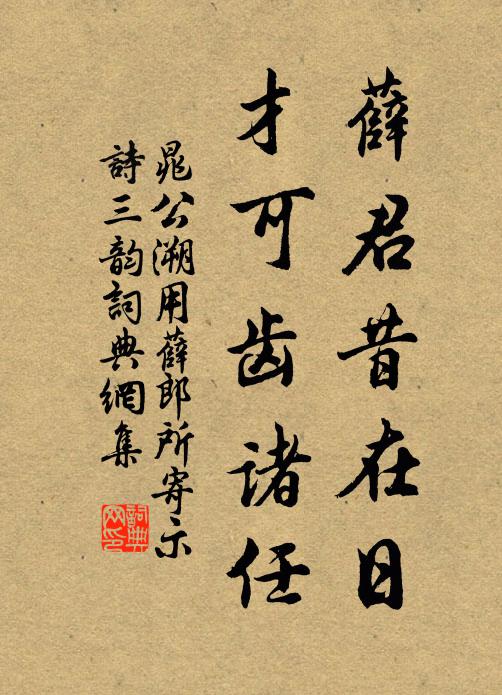 薛君昔在日
才可齿诸任
晁公溯用薛郎所寄示
詩三韵詞典網集
詞典网印